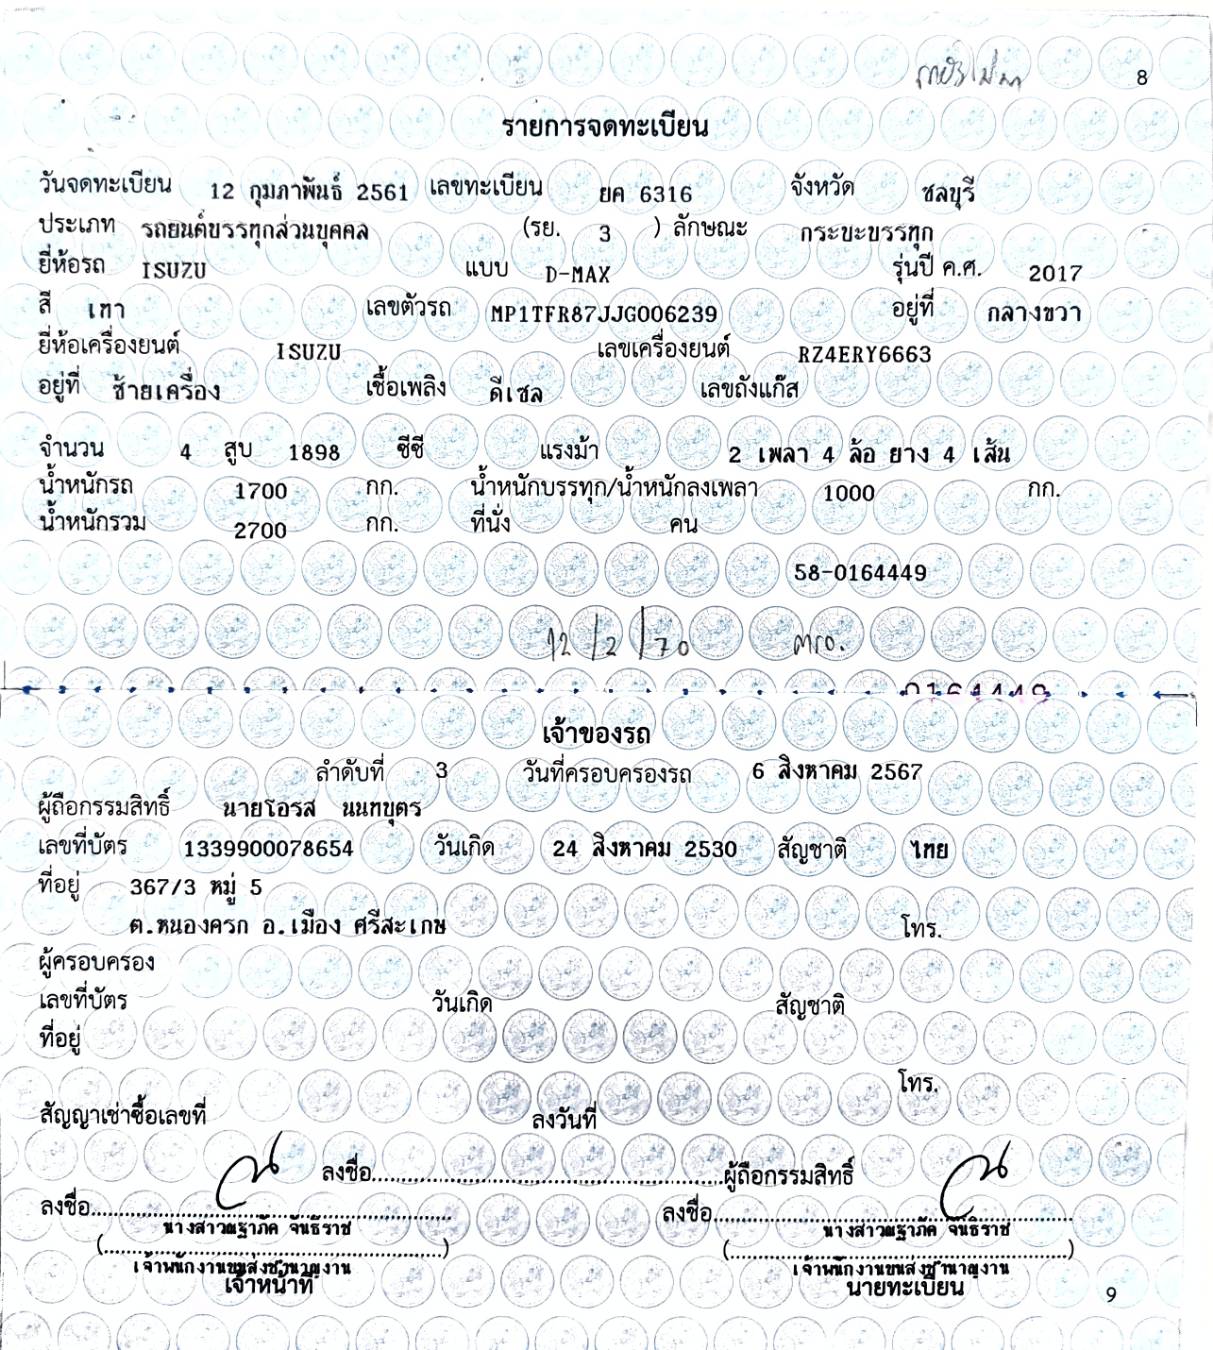 8
รายการจดทะเบียน
วันจดทะเบียน 12 กุมภาพันธ์ 2561 เลขทะเบียน ยค 6316 จังหวัด ชลบุรี
ประเภท รถยนต์บรรทุกส่วนบุคคล (รย. 3 ) ลักษณะ กระบะบรรทุก
ยี่ห้อรถ ISUZU แบบ D-MAX รุ่นปี ค.ศ. 2017
สี เทา เลขตัวรถ MP1TFR87JJG006239 อยู่ที่ กลางขวา
ยี่ห้อเครื่องยนต์ ISUZU เลขเครื่องยนต์ RZ4ERY6663
อยู่ที่ ซ้ายเครื่อง เชื้อเพลิง ดีเซล เลขถังแก๊ส
จำนวน 4 สูบ 1898 ซีซี แรงม้า 2 เพลา 4 ล้อ ยาง 4 เส้น
น้ำหนักรถ 1700 กก. น้ำหนักบรรทุก/น้ำหนักลงเพลา 1000 กก.
น้ำหนักรวม 2700 กก. ที่นั่ง คน
58-0164449
12/2/70 ตรอ.
0164449
เจ้าของรถ
ลำดับที่ 3 วันที่ครอบครองรถ 6 สิงหาคม 2567
ผู้ถือกรรมสิทธิ์ นายโอรส นนทบุตร
เลขที่บัตร 1339900078654 วันเกิด 24 สิงหาคม 2530 สัญชาติ ไทย
ที่อยู่ 367/3 หมู่ 5
ต.หนองครก อ.เมือง ศรีสะเกษ โทร.
ผู้ครอบครอง
เลขที่บัตร วันเกิด สัญชาติ
ที่อยู่
โทร.
สัญญาเช่าซื้อเลขที่ ลงวันที่
ลงชื่อ........ผู้ถือกรรมสิทธิ์
ลงชื่อ........ ลงชื่อ........
นางสาวณฐาภัค จันธิราช นางสาวณฐาภัค จันธิราช
(........) (........)
เจ้าพนักงานขนส่งชำนาญงาน เจ้าพนักงานขนส่งชำนาญงาน
เจ้าหน้าที่ นายทะเบียน
9